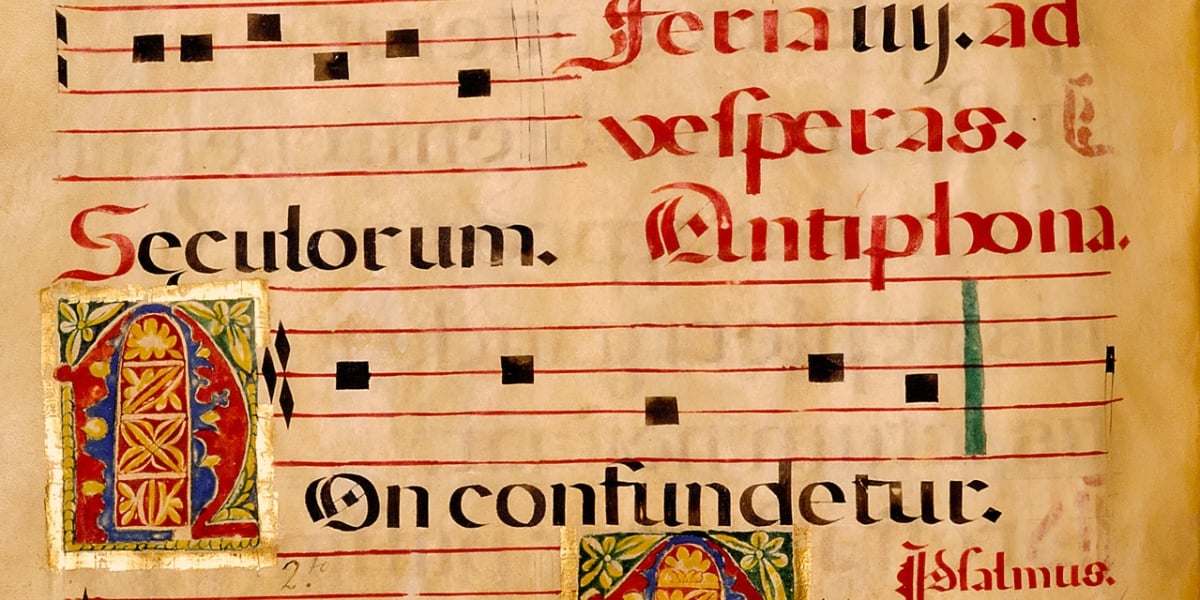 Feria iiij. ad
veſperas.
Seculorum. Antiphona.
NOn confundetur.
Pſalmus.